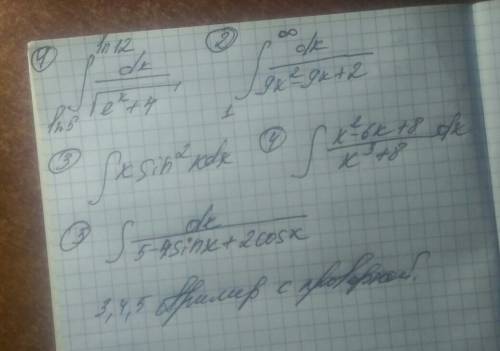 ① ∫_{ln5}^{ln12} dx/√(e^x+4), ② ∫_1^∞ dx/(9x²-9x+2)
③ ∫ x sin² x dx ④ ∫ (x²-6x+8)/(x³+8) dx
⑤ ∫ dx/(5-4sinx+2cosx)
3,4,5 с проверкой.